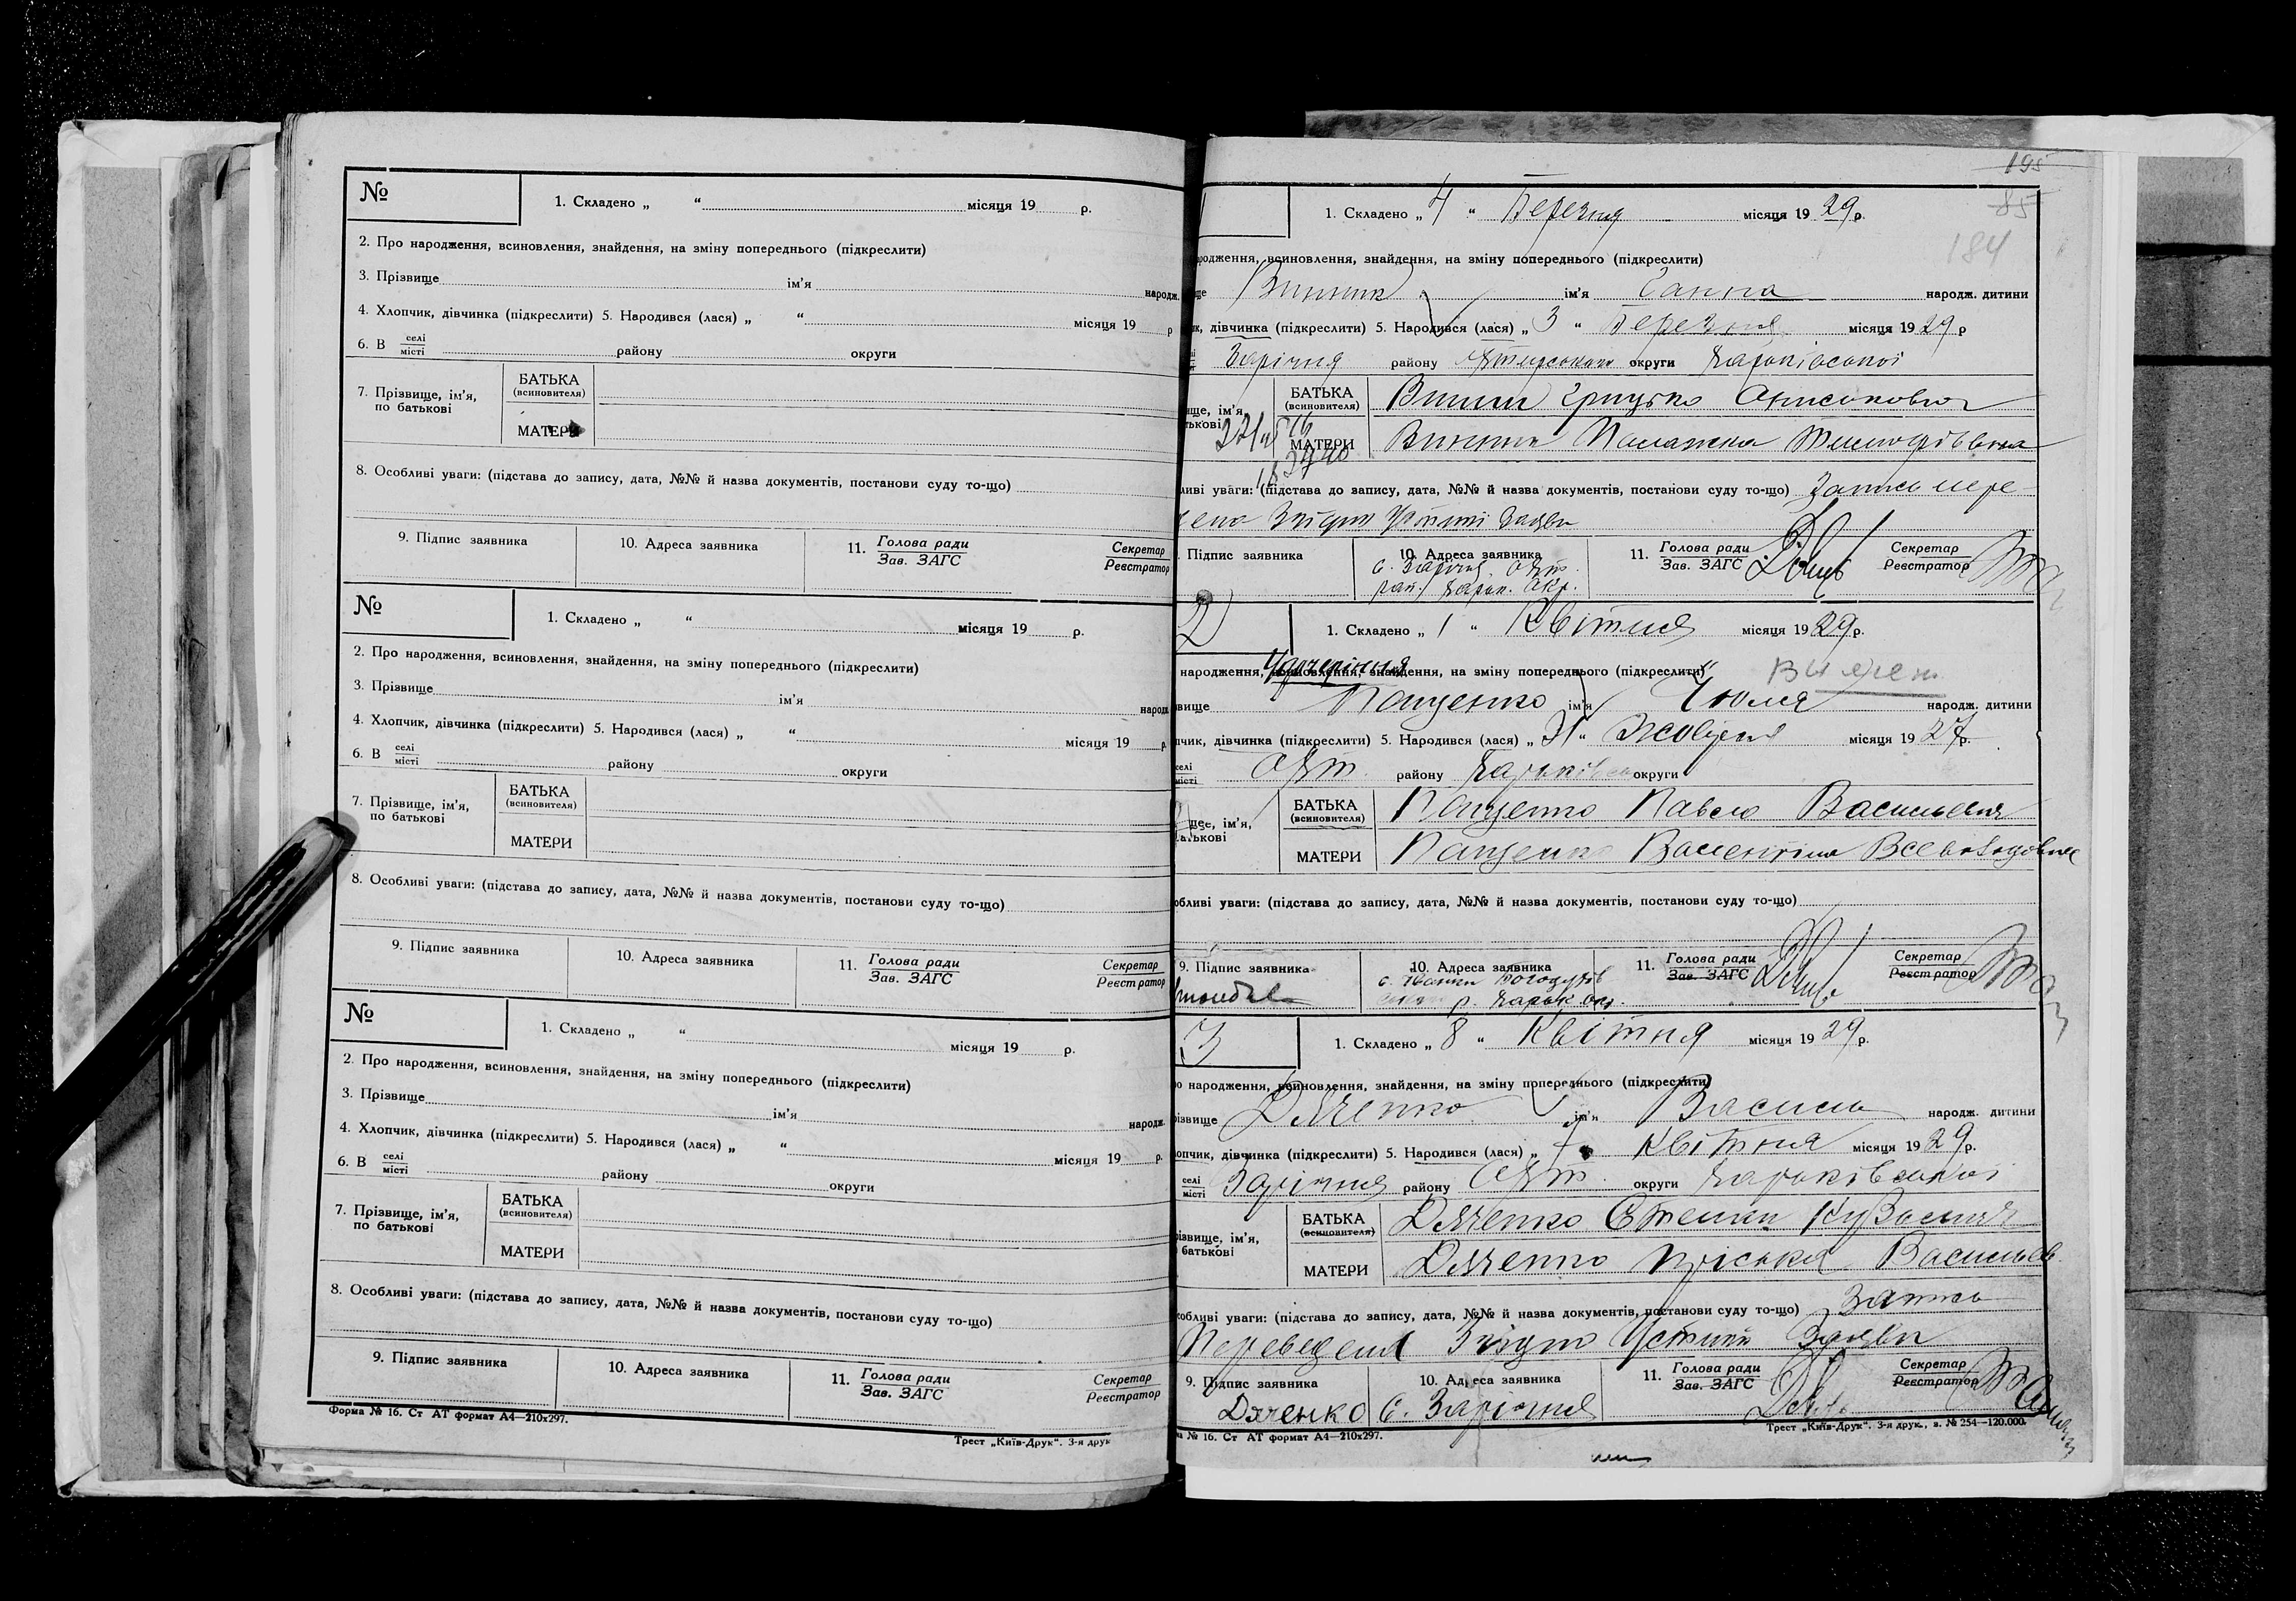 №
1. Складено „ “ місяця 19 р.
2. Про народження, всиновлення, знайдення, на зміну попереднього (підкреслити)
3. Прізвище ім’я народж.
4. Хлопчик, дівчинка (підкреслити) 5. Народився (лася) „ “ місяця 19 р
6. В селі місті району округи
7. Прізвище, ім’я, по батькові
БАТЬКА (всиновителя)
МАТЕРИ
8. Особливі уваги: (підстава до запису, дата, №№ й назва документів, постанови суду то-що)
9. Підпис заявника 10. Адреса заявника 11. Голова ради Зав. ЗАГС Секретар Реєстратор
№
1. Складено „ “ місяця 19 р.
2. Про народження, всиновлення, знайдення, на зміну попереднього (підкреслити)
3. Прізвище ім’я народж.
4. Хлопчик, дівчинка (підкреслити) 5. Народився (лася) „ “ місяця 19 р.
6. В селі місті району округи
7. Прізвище, ім’я, по батькові
БАТЬКА (всиновителя)
МАТЕРИ
8. Особливі уваги: (підстава до запису, дата, №№ й назва документів, постанови суду то-що)
9. Підпис заявника 10. Адреса заявника 11. Голова ради Зав. ЗАГС Секретар Реєстратор
№
1. Складено „ “ місяця 19 р.
2. Про народження, всиновлення, знайдення, на зміну попереднього (підкреслити)
3. Прізвище ім’я народж.
4. Хлопчик, дівчинка (підкреслити) 5. Народився (лася) „ “ місяця 19 р.
6. В селі місті району округи
7. Прізвище, ім’я, по батькові
БАТЬКА (всиновителя)
МАТЕРИ
8. Особливі уваги: (підстава до запису, дата, №№ й назва документів, постанови суду то-що)
9. Підпис заявника 10. Адреса заявника 11. Голова ради Зав. ЗАГС Секретар Реєстратор
Форма № 16. Ст АТ формат А4—210х297.
Трест „Київ-Друк“. 3-я друк
195
85
184
1. Складено „ 4 “ Березня місяця 19 29 р.
родження, всиновлення, знайдення, на зміну попереднього (підкреслити)
ще Винник ім’я Ганна народж. дитини
к, дівчинка (підкреслити) 5. Народився (лася) „ 3 “ Березня місяця 19 29 р
Зарічня району округи Харківської
ще, ім’я тькові
БАТЬКА (всиновителя) Винник Грицько
МАТЕРИ Палажка Тимофіївна
иві уваги: (підстава до запису, дата, №№ й назва документів, постанови суду то-що) Запись пере
заяви
Підпис заявника 10. Адреса заявника 11. Голова ради Зав. ЗАГС Секретар Реєстратор
с. Зарічня
2
1. Складено „ 1 “ Квітня місяця 19 29 р.
народження, всиновлення, знайдення, на зміну попереднього (підкреслити)
вище Пащенко ім’я Юлія народж. дитини
пчик, дівчинка (підкреслити) 5. Народився (лася) „ 31 “ Жовтня місяця 19 27 р.
селі місті району округи
ще, ім’я, атькові
БАТЬКА (всиновителя) Пащенко Павло Васильевич
МАТЕРИ Пащенко Валентіна Всеволодовна
обливі уваги: (підстава до запису, дата, №№ й назва документів, постанови суду то-що)
9. Підпис заявника 10. Адреса заявника 11. Голова ради Зав. ЗАГС Секретар Реєстратор
3
1. Складено „ 8 “ Квітня місяця 19 29 р.
о народження, всиновлення, знайдення, на зміну попереднього (підкреслити)
різвище Дяченко ім’я Василь народж. дитини
опчик, дівчинка (підкреслити) 5. Народився (лася) „ 7 “ Квітня місяця 19 29 р.
селі місті Зарічня району округи Харьківської
різвище, ім’я, батькові
БАТЬКА (всиновителя) Дяченко Степан Кузьмич
МАТЕРИ Дяченко Пріська Васильев
собливі уваги: (підстава до запису, дата, №№ й назва документів, постанови суду то-що) Запись
Переведена Згідно Устной Заяви
9. Підпис заявника 10. Адреса заявника 11. Голова ради Зав. ЗАГС Секретар Реєстратор
Дяченко с. Зарічня
а № 16. Ст АТ формат А4—210х297.
Трест „Київ-Друк“. 3-я друк., з. № 254—120.000.